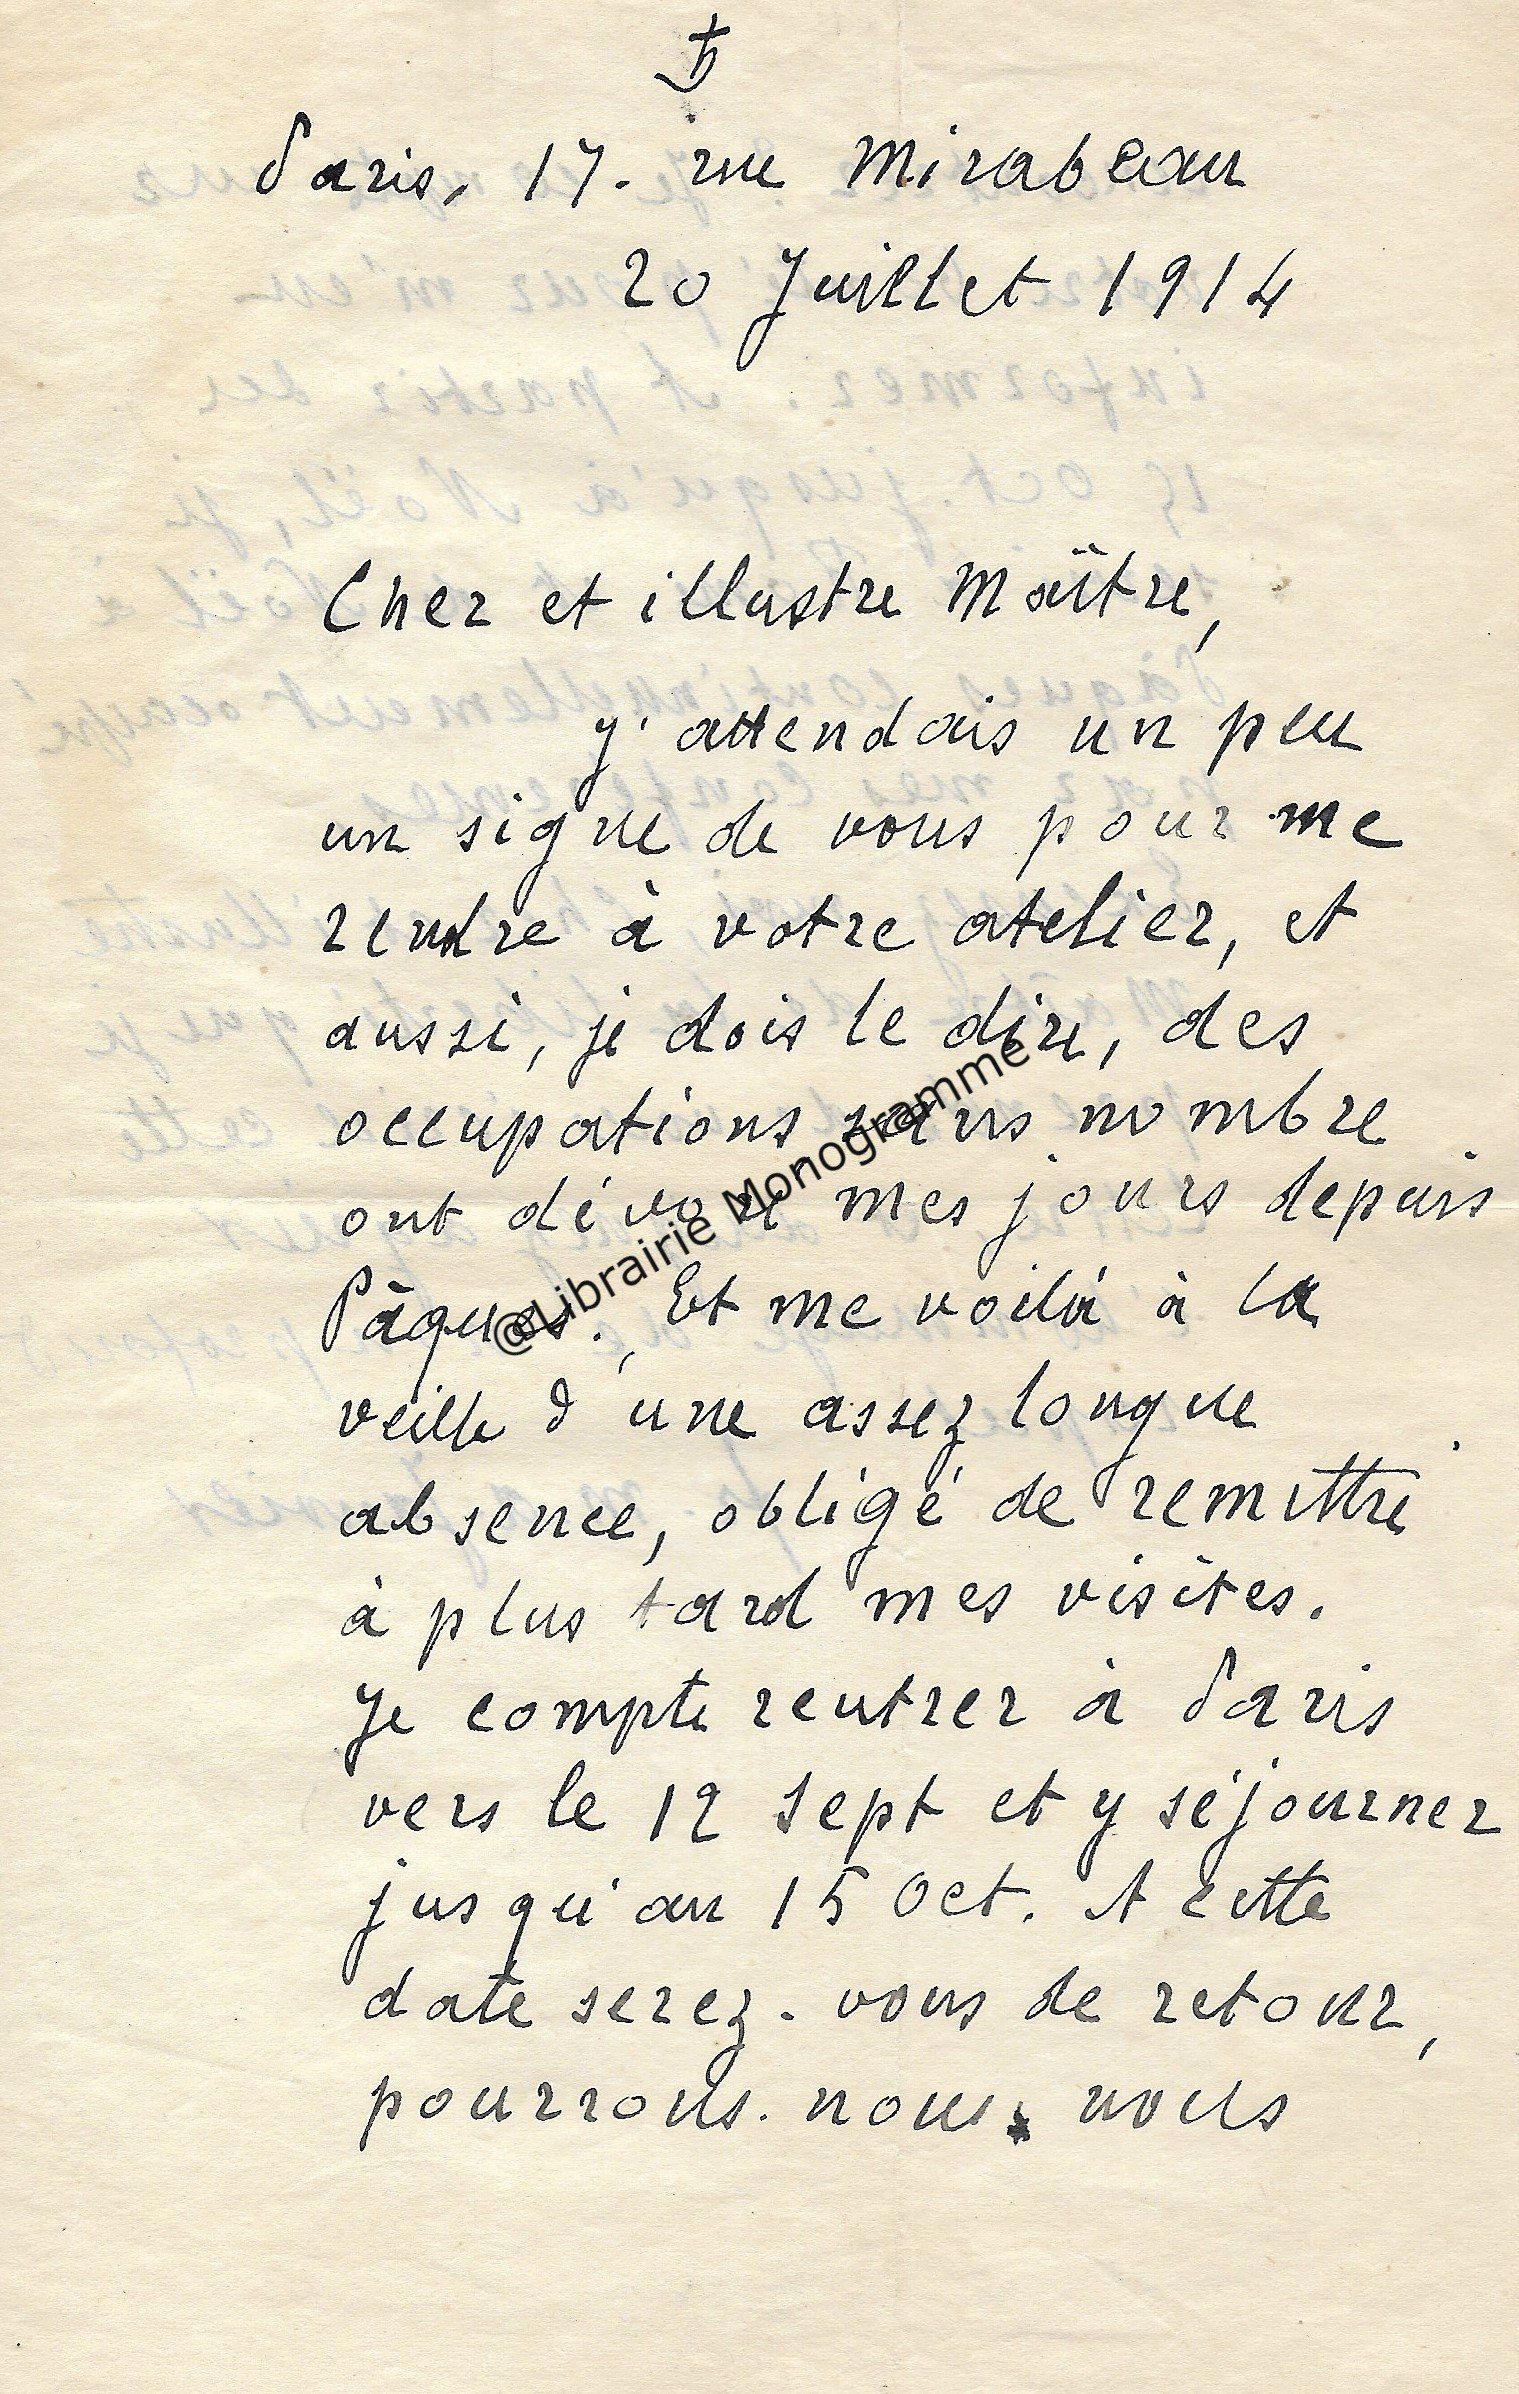 Paris, 17. rue Mirabeau
20 Juillet 1914
Cher et illustre Maître,
J'attendais un peu
un signe de vous pour me
rendre à votre atelier, et
aussi, je dois le dire, des
occupations sans nombre
ont dévoré mes jours depuis
Pâques. Et me voilà à la
veille d'une assez longue
absence, obligé de remettre
à plus tard mes visites.
Je compte rentrer à Paris
vers le 12 sept et y séjourner
jusqu'au 15 Oct. A cette
date serez-vous de retour,
pourrons-nous nous
@Librairie Monogramme